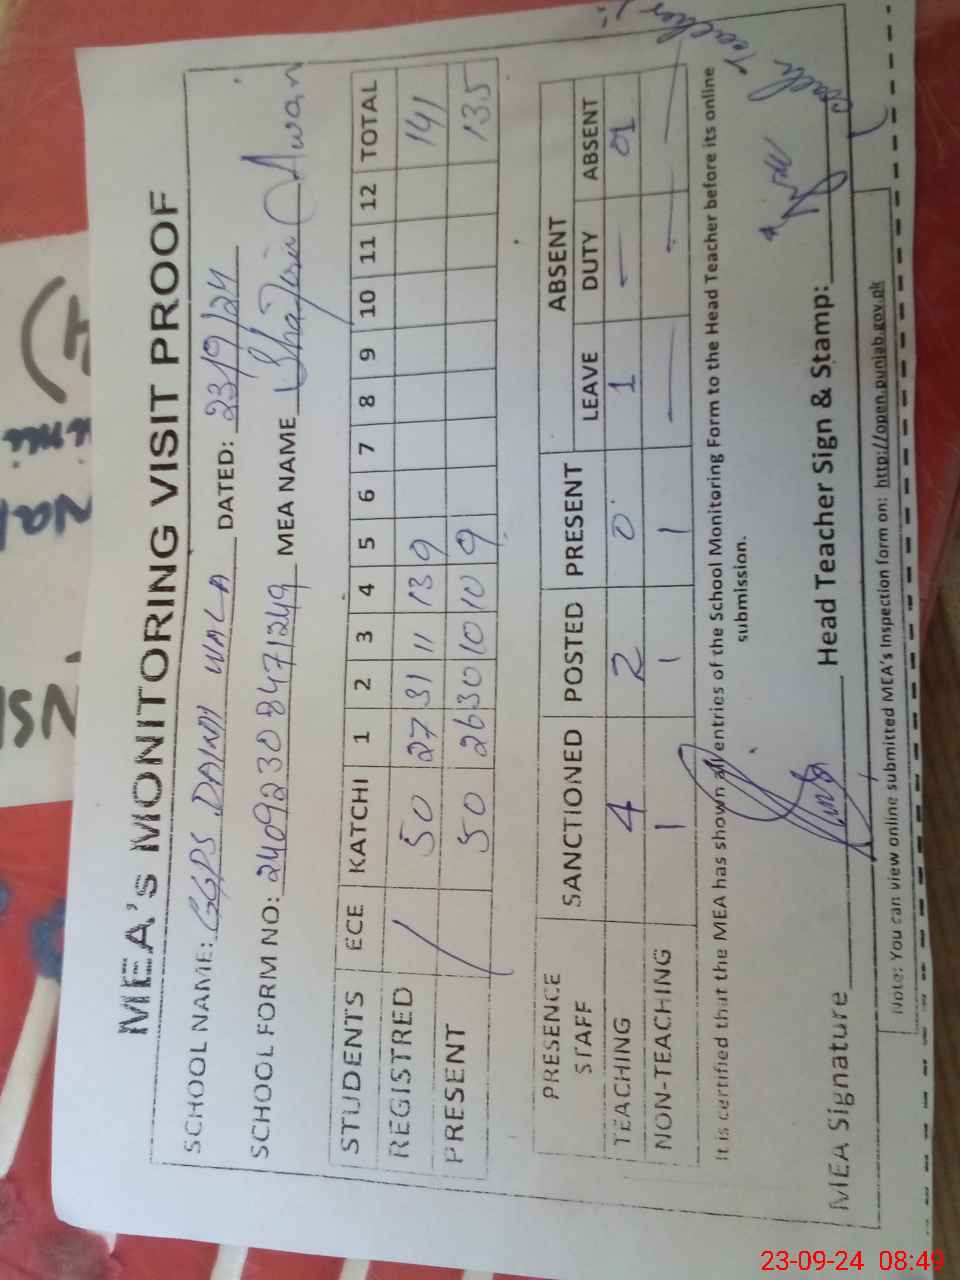 MEA's MONITORING VISIT PROOF
SCHOOL NAME: GGPS DAINDI WALA DATED: 23/9/24
SCHOOL FORM NO: 24092308471249 MEA NAME Awan
STUDENTS ECE KATCHI 1 2 3 4 5 6 7 8 9 10 11 12 TOTAL
REGISTRED / 50 27 31 11 13 9 141
PRESENT 50 26 30 10 10 9 135
PRESENCE STAFF SANCTIONED POSTED PRESENT ABSENT
LEAVE DUTY ABSENT
TEACHING 4 2 0 1 - 01
NON-TEACHING 1 1 1 - - -
It is certified that the MEA has shown all entries of the School Monitoring Form to the Head Teacher before its online
submission.
MEA Signature Head Teacher Sign & Stamp:
Teacher
Note: You can view online submitted MEA's Inspection form on: http://open.punjab.gov.pk
23-09-24 08:49